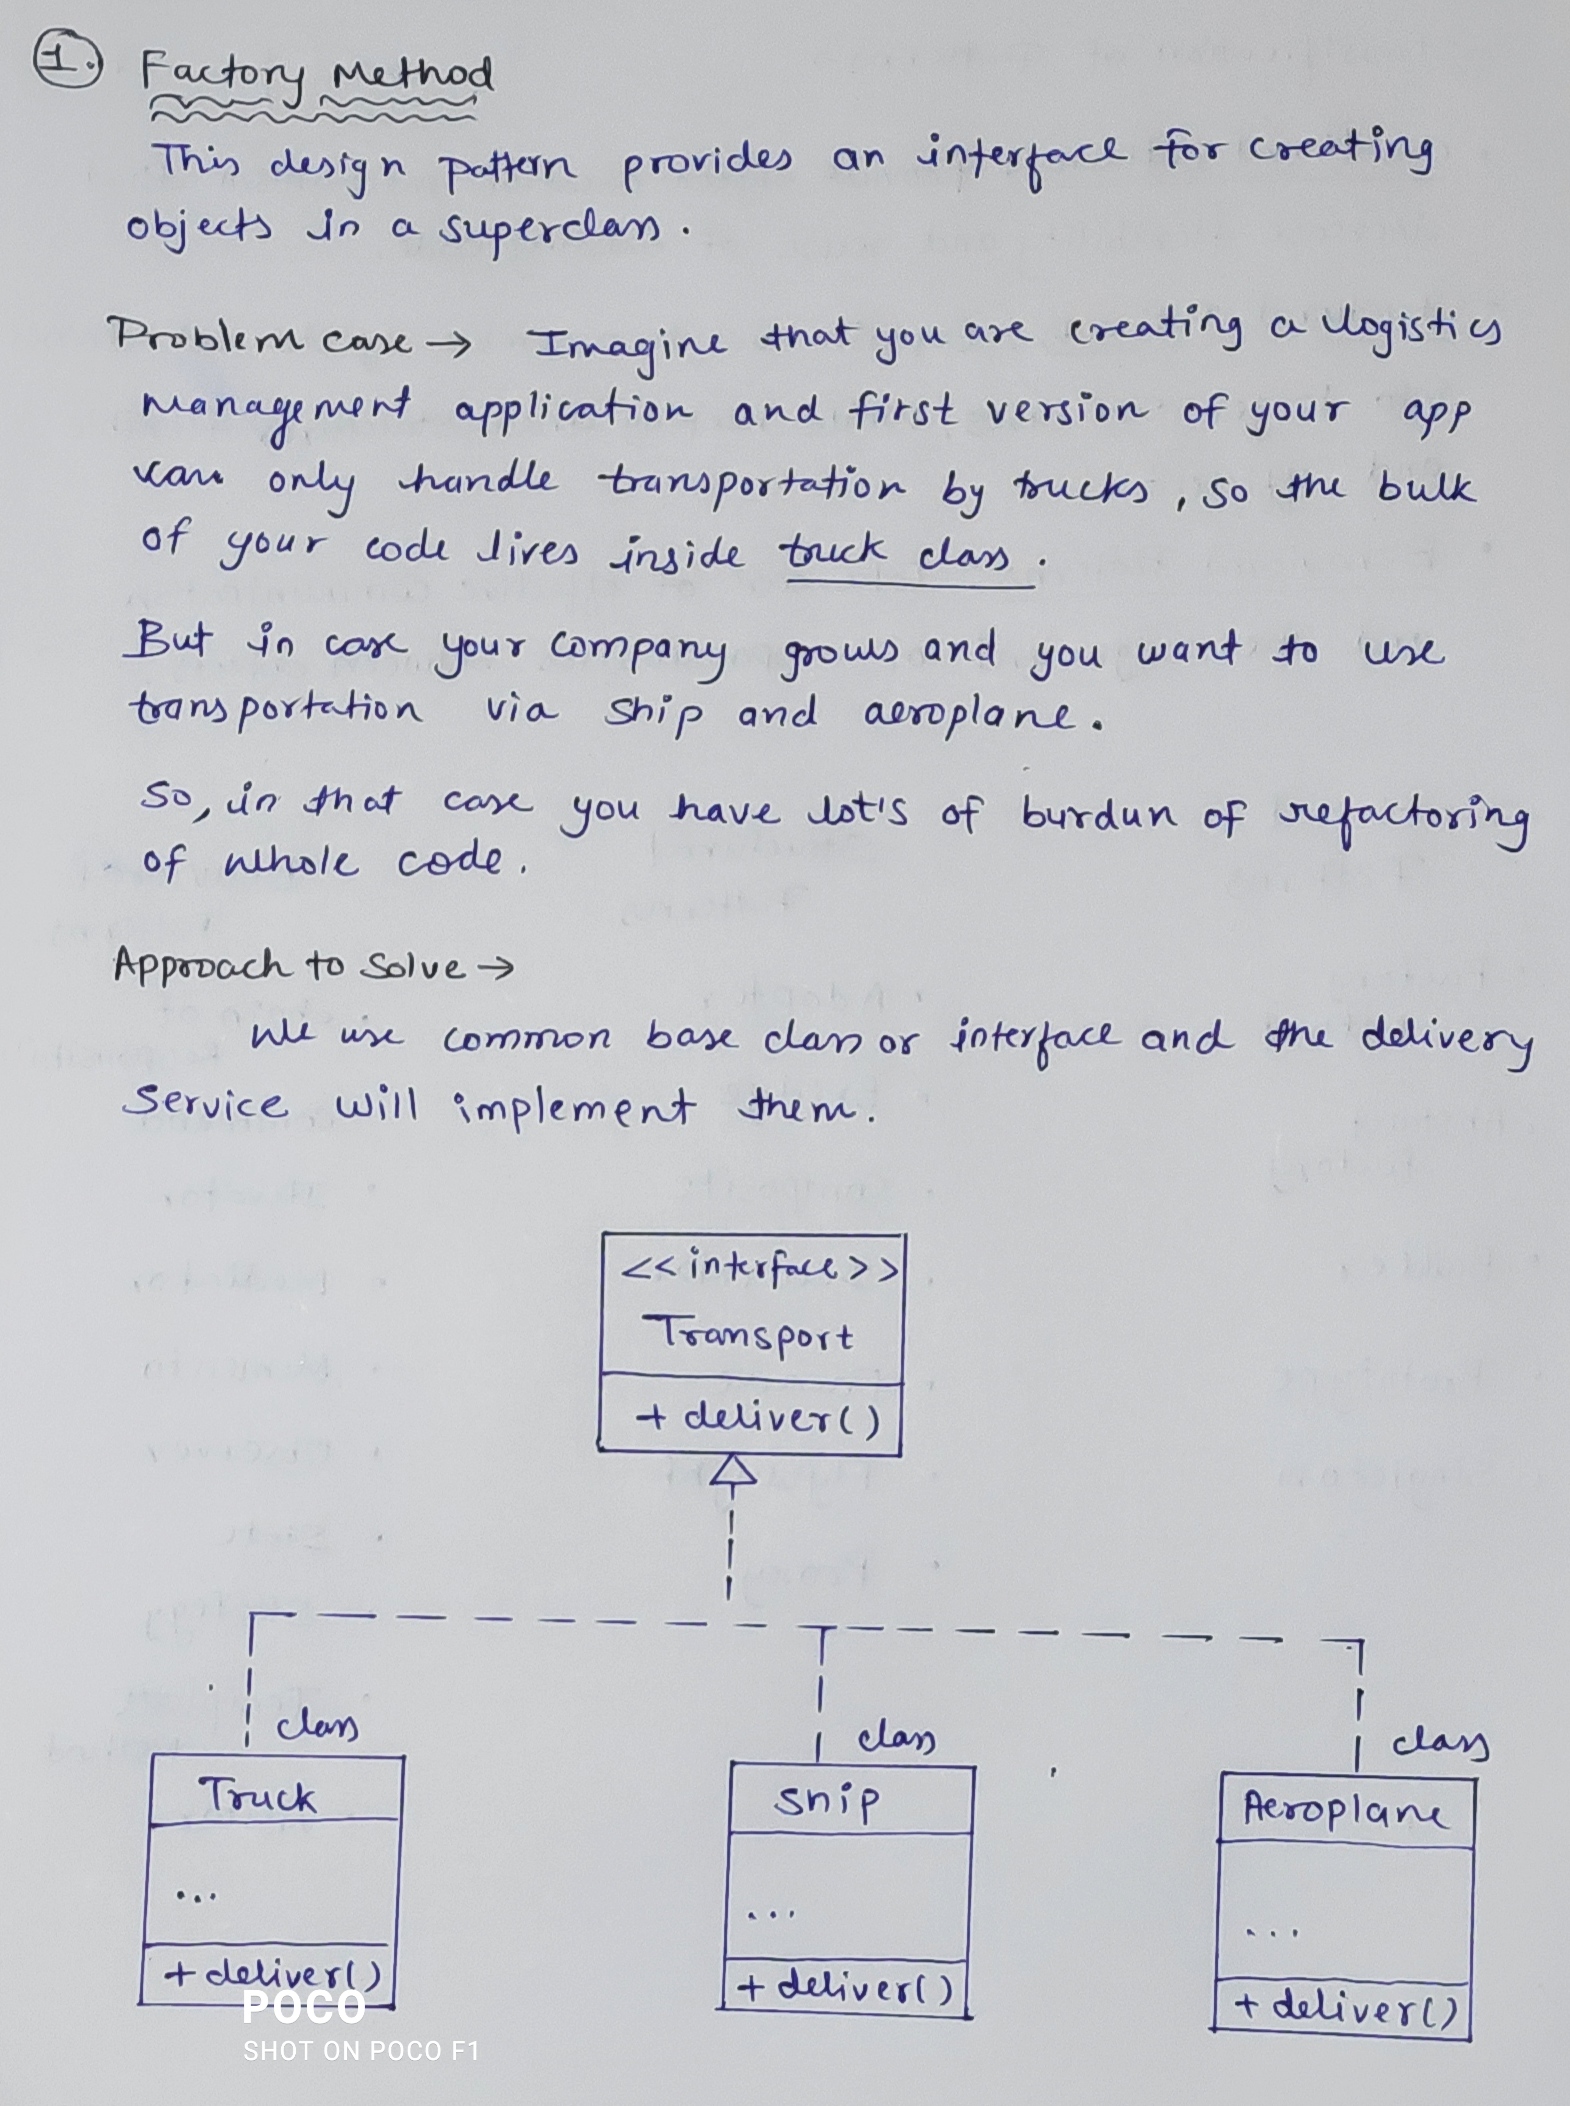 1. Factory Method
This design pattern provides an interface for creating
objects in a superclass.
Problem case → Imagine that you are creating a logistics
management application and first version of your app
can only handle transportation by trucks, so the bulk
of your code lives inside truck class.
But in case your company grows and you want to use
transportation via ship and aeroplane.
So, in that case you have lot's of burdun of refactoring
of whole code.
Approach to Solve →
We use common base class or interface and the delivery
Service will implement them.
<<interface>>
Transport
+ deliver()
class
class
class
Truck
Ship
Aeroplane
...
...
...
+ deliver()
+ deliver()
+ deliver()
POCO
SHOT ON POCO F1